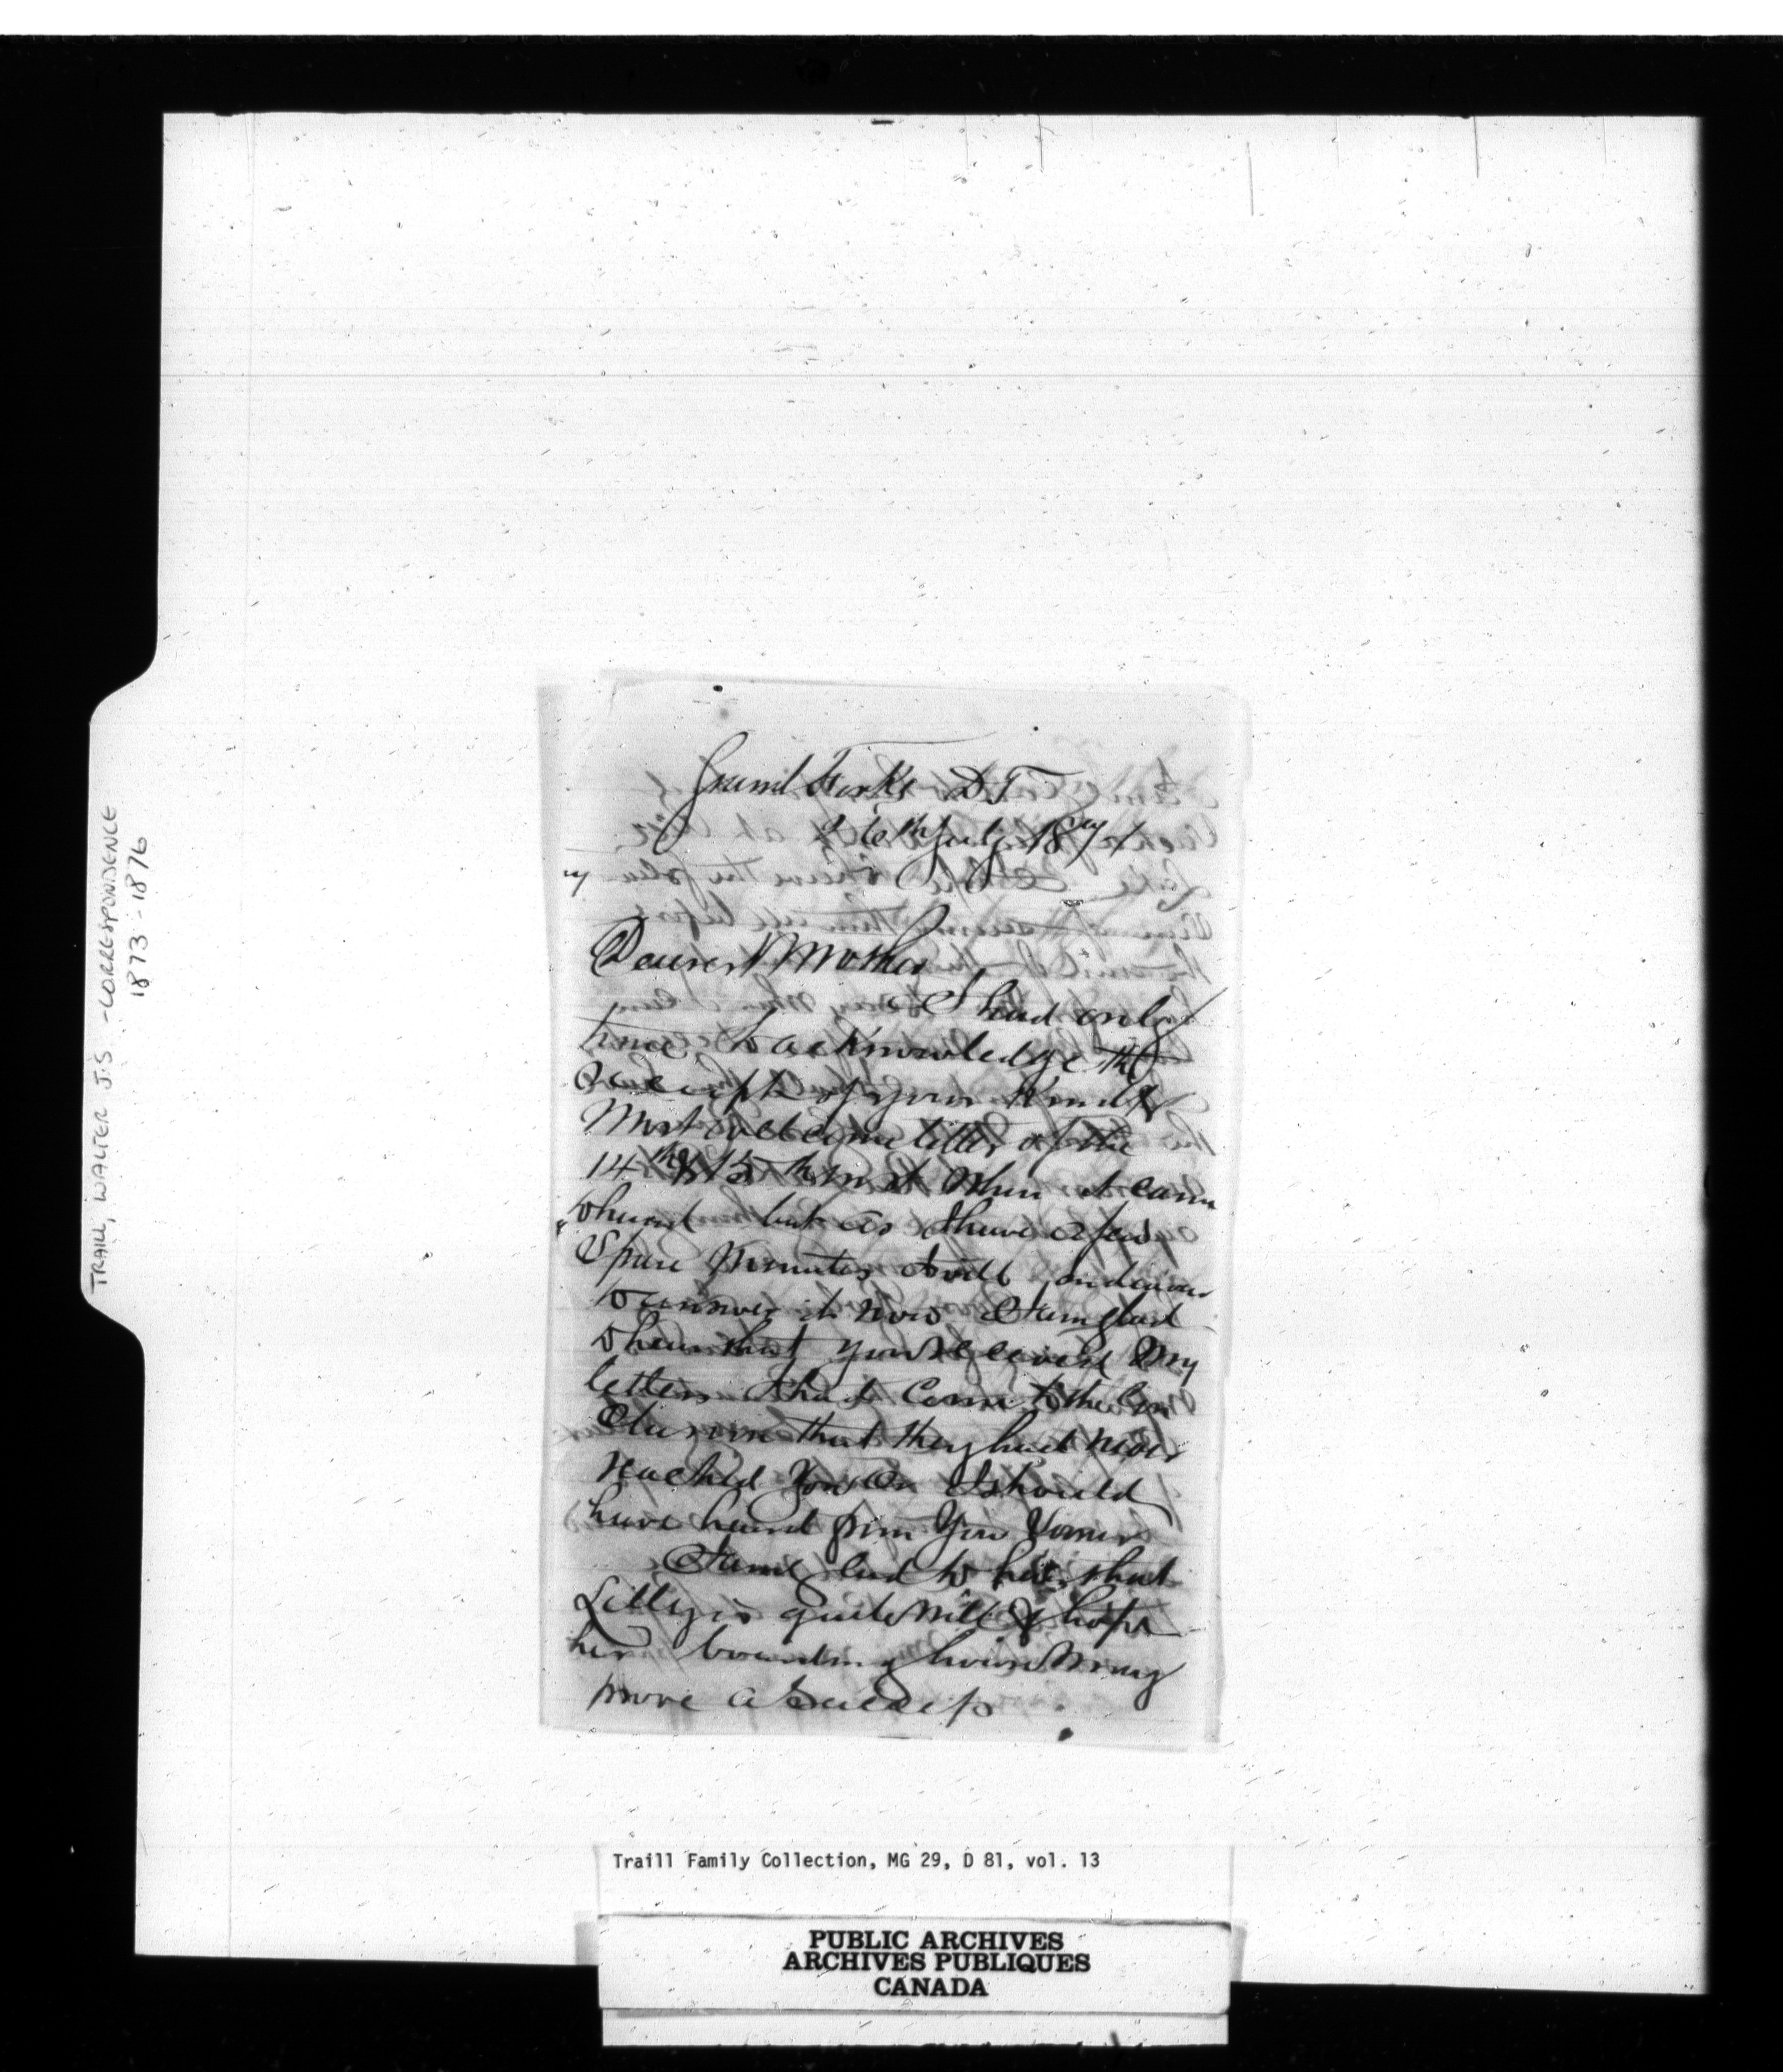 TRAILL, WALTER J.S. - CORRESPONDENCE
1873-1876
Grand Forks DT
26th July 187
Dearest Mother
I had only
time to acknowledge the
receipt of your kind &
Most welcome letter of the
14th & 15th inst when it came
to hand but as I have a few
Spare minutes I will endeavour
to answer it now I am glad
to hear that you received my
letters I had Come to the Con
clusion that they had never
reached you or I should
have heard from you sooner
I am glad to hear that
Lilly is quite well & hope
her boarding house may
prove a success
Traill Family Collection, MG 29, D 81, vol. 13
PUBLIC ARCHIVES
ARCHIVES PUBLIQUES
CANADA